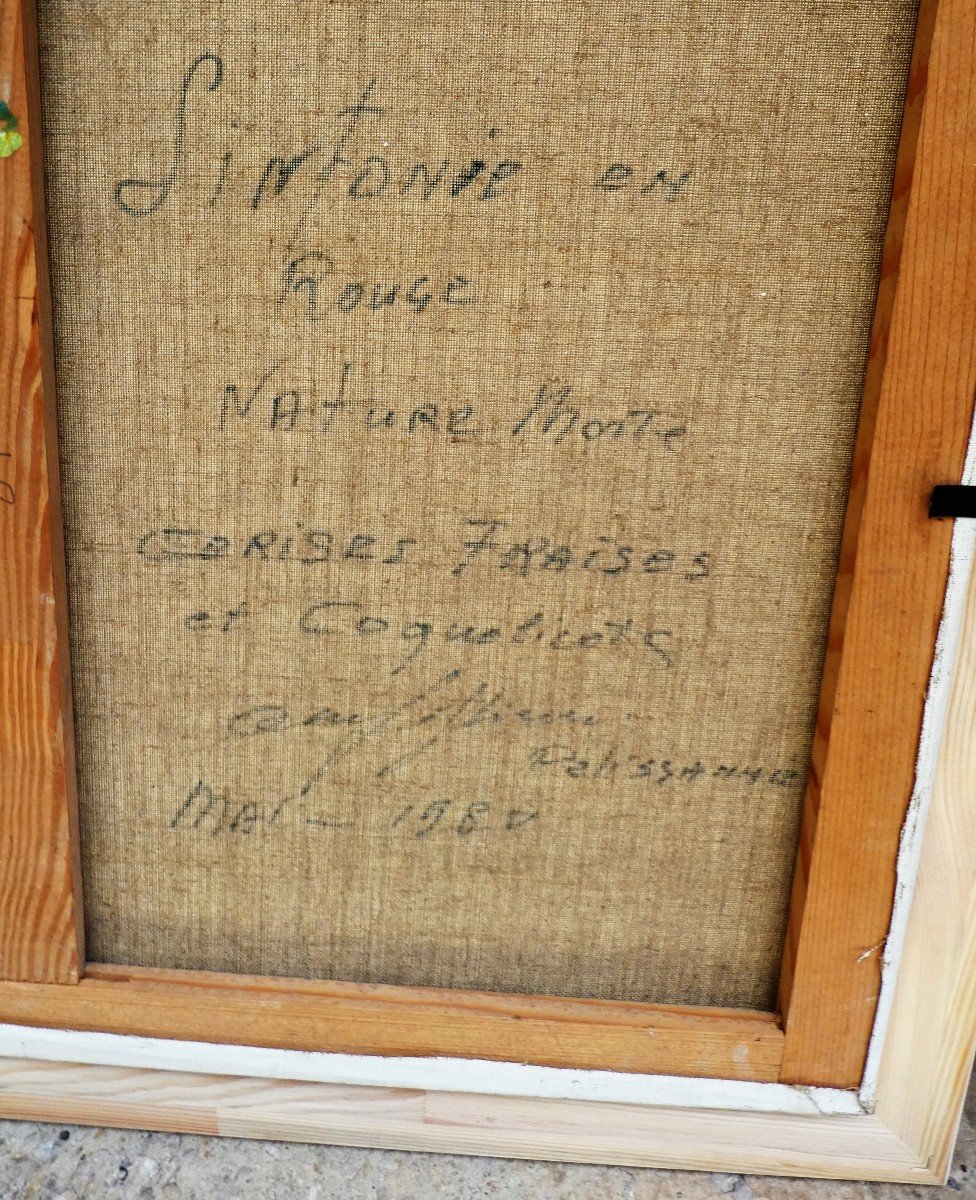 Sinfonie en
Rouge
Nature Morte
Cerises Fraises
et Coquelicots
Pelissanne
Mai - 1980